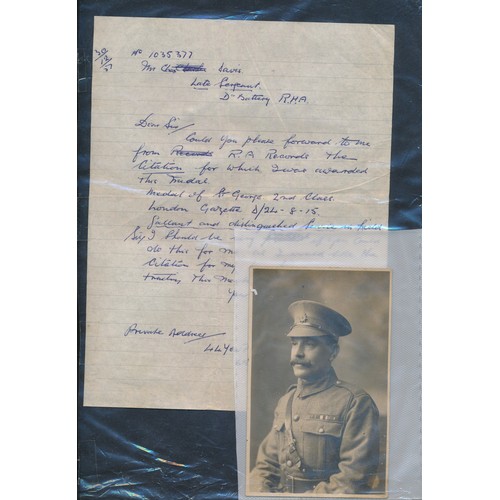 30/12/37
No 1035377
Mr Davis
Late Sergeant
D" Battery R.H.A.
Dear Sir/
Could you please forward to me
from Records R.A Records the
Citation for which I was awarded
this Medal.
Medal of St George 2nd Class.
London Gazette D/24-8-15.
Gallant and distinguished
Sir, I should be
do this for m
Citation for my
this Me
Private Address/